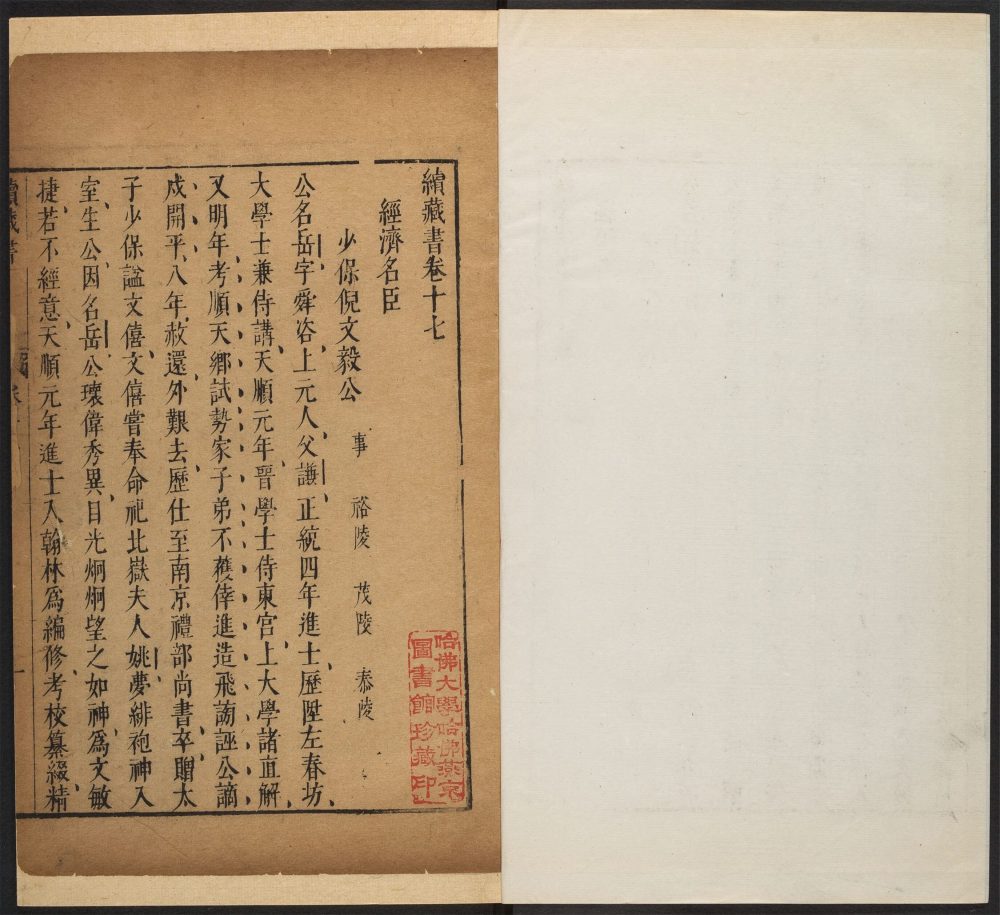 續藏書卷十七
經濟名臣
少保倪文毅公 事 裕陵 茂陵 泰陵
公名岳字舜咨上元人父謙正統四年進士歷陞左春坊
大學士兼侍講天順元年晉學士侍東宮上大學諸直解
又明年考順天鄉試勢家子弟不獲倖進造飛謗誣公謫
戍開平八年赦還外艱去歷仕至南京禮部尚書卒贈太
子少保諡文僖文僖嘗奉命祀北嶽夫人姚夢緋袍神入
室生公因名岳公瓌偉秀異目光炯炯望之如神爲文敏
捷若不經意天順元年進士入翰林爲編修考校纂綴精
續藏書
一
哈佛大學哈佛燕京
圖書館珍藏印